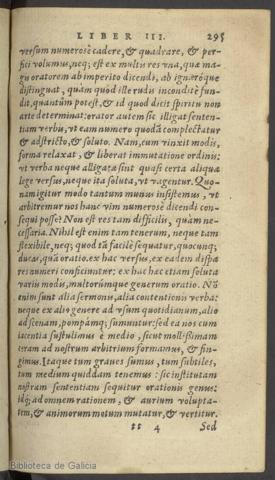 LIBER III. 295
versum numerosè cadere, & quadrare, & per-
fici volumus, neq; est ex multis res vna, quæ ma-
gis oratorem ab imperito dicendi, ab ignaróque
distinguat, quàm quòd ille rudis inconditè fun-
dit, quantùm potest, & id quod dicit spiritu non
arte determinat: orator autem sic illigat senten-
tiam verbis, vt eam numero quodā complectatur
& adstricto, & soluto. Nam, cum vinxit modis,
forma relaxat, & liberat immutatione ordinis:
vt verba neque alligata sint quasi certa aliqua
lege versus, neque ita soluta, vt vagentur. Quo-
nam igitur modo tantum munus insistemus, vt
arbitremur nos hanc vim numerosè dicendi con-
sequi posse? Non est res tam difficilis, quàm ne-
cessaria. Nihil est enim tam tenerum, neque tam
flexibile, neq; quod tā facilè sequatur, quocunq;
ducas, quā oratio. ex hac versus, ex eadem dispa
res numeri conficiuntur: ex hac etiam soluta
variis modis, multorúmque generum oratio. Nō
enim sunt alia sermonis, alia contentionis verba:
neque ex alio genere ad vsum quotidianum, alio
ad scenam, pompámq; sumuntur: sed ea nos cum
iacentia sustulimus è medio, sicut mollissimam
ceram ad nostrum arbitrium formamus, & fin-
gimus. Itaque tum graues sumus, tum subtiles,
tum medium quiddam tenemus: sic institutam
nostram sententiam sequitur orationis genus:
idq; ad omnem rationem, & aurium volupta-
tem, & animorum motum mutatur, & vertitur.
4 Sed
Biblioteca de Galicia